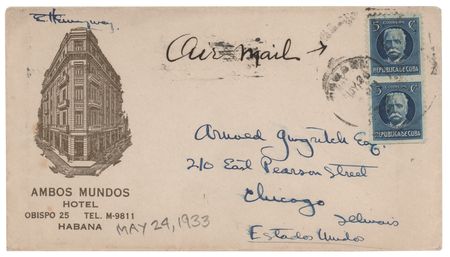 E. Hemingway.
Air mail →
5 CORREOS 5
REPUBLICA DE CUBA
5 CORREOS 5
REPUBLICA DE CUBA
Arnold Gingrich Esq.
210 East Pearson Street
Chicago
Illinois
Estados Unidos
AMBOS MUNDOS
HOTEL
OBISPO 25 TEL. M-9811
HABANA
MAY 24, 1933